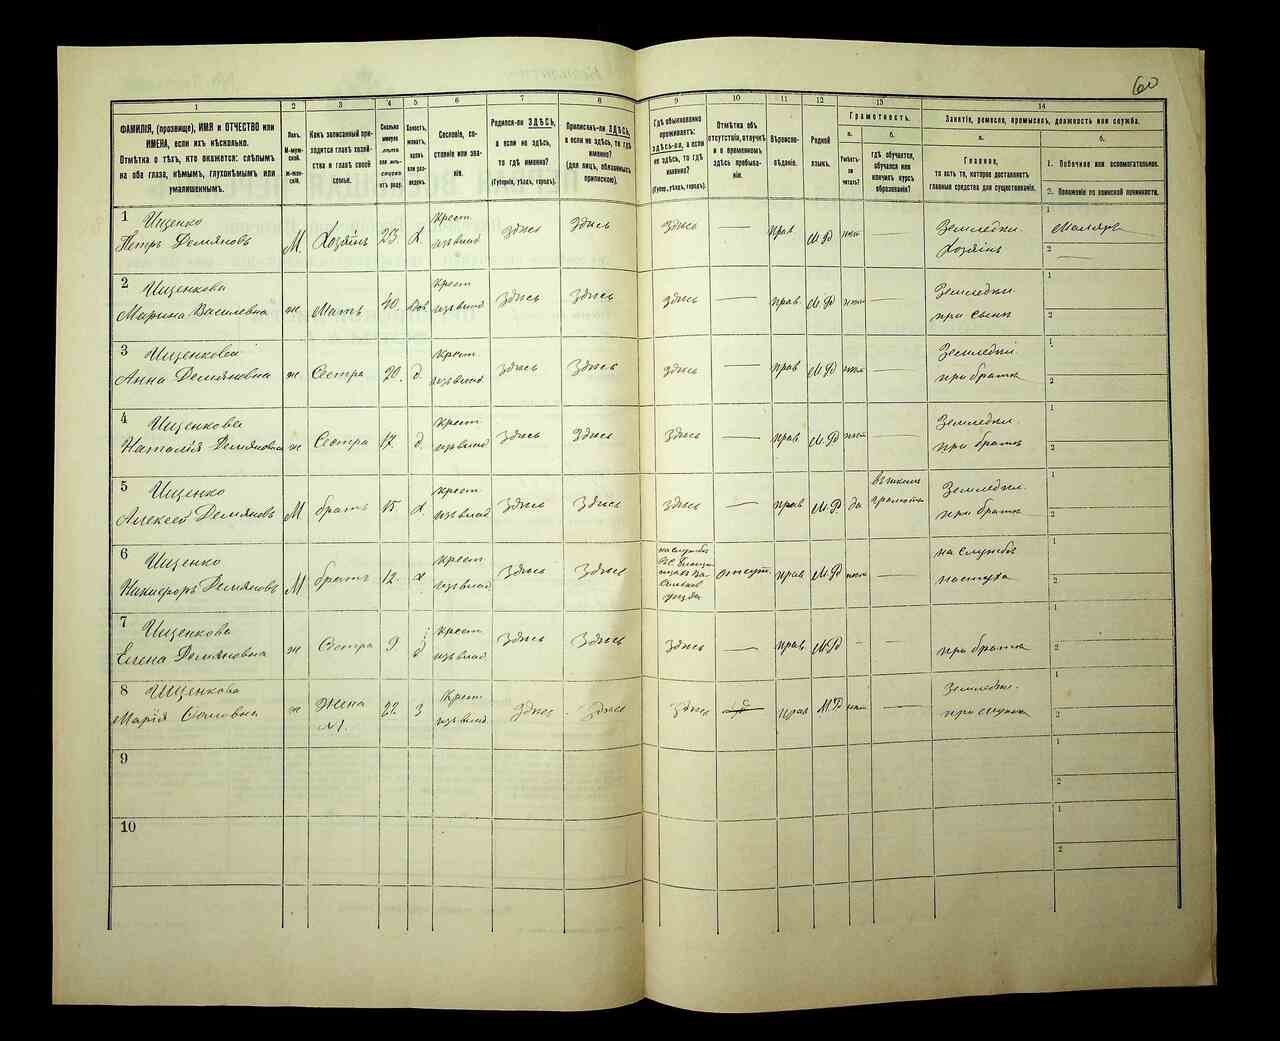 60
1
2
3
4
5
6
7
8
9
10
11
12
13
14
ФАМИЛІЯ, (прозвище), ИМЯ и ОТЧЕСТВО или
ИМЕНА, если ихъ нѣсколько.
Отмѣтка о тѣхъ, кто окажется: слѣпымъ
на оба глаза, нѣмымъ, глухонѣмымъ или
умалишеннымъ.
Полъ.
М-муж-
ской.
Ж-жен-
скій.
Какъ записанный при-
ходится главѣ хозяй-
ства и главѣ своей
семьи.
Сколько
минуло
лѣтъ
или мѣс.
отъ роду.
Холостъ,
женатъ,
вдовъ
или раз-
веденъ.
Сословіе, со-
стояніе или зва-
ніе.
Родился-ли ЗДѢСЬ,
а если не здѣсь,
то гдѣ именно?
(Губернія, уѣздъ, городъ).
Приписанъ-ли ЗДѢСЬ,
а если не здѣсь, то гдѣ
именно?
(для лицъ, обязанныхъ
припискою).
Гдѣ обыкновенно
проживаетъ:
здѣсь-ли, а если
не здѣсь, то гдѣ
именно?
(Губер., уѣздъ, городъ).
Отмѣтка объ
отсутствіи, отлучкѣ
и о временномъ
здѣсь пребыва-
ніи.
Вѣроиспо-
вѣданіе.
Родной
языкъ.
Грамотность.
а.
Умѣетъ-
ли
читать?
б.
гдѣ обучается,
обучался или
кончилъ курсъ
образованія?
Занятіе, ремесло, промыселъ, должность или служба.
а.
Главное,
то есть то, которое доставляетъ
главныя средства для существованія.
б.
1. Побочное или вспомогательное.
2. Положеніе по воинской повинности.
1 Ищенко
Петръ Демяновъ М. Хозяинъ 23 Х. Крест. изъ влад здѣсь здѣсь здѣсь — прав М Р нѣт — Земледел. Хозяинъ 1 Маляръ 2 —
2 Ищенкова
Марина Василевна ж. Мать 40. Вдов Крест изъ влад здѣсь здѣсь здѣсь — прав. М Р нѣт — Земледел. при сынѣ 1 2
3 Ищенкова
Анна Демяновна ж. Сестра 20. д. Крест. изъ влад здѣсь здѣсь здѣсь — прав М Р нѣт — Земледел. при братѣ 1 2
4 Ищенкова
Наталія Демяновна ж Сестра 17 д. Крест. изъ влад здѣсь здѣсь здѣсь — прав М Р нѣт — Земледел. при братѣ 1 2
5 Ищенко
Алексей Демяновъ М братъ 15 Х. Крест. изъ влад здѣсь здѣсь здѣсь — прав М. Р. да въ школѣ Земледел. при братѣ 1 2
6 Ищенко
Никифоръ Демяновъ М братъ 12. Х Крест. изъ влад здѣсь здѣсь на службѣ отсут. прав М. Р нѣт — на службѣ пастуха 1 2
7 Ищенкова
Елена Демяновна ж Сестра 9 д Крест изъ влад здѣсь здѣсь здѣсь — прав М Р — — при братѣ 1 2
8 Ищенкова
Марія ж Жена №1. 22. З Крест. изъ влад здѣсь здѣсь здѣсь прав М. Р нѣт — Земледел. при мужѣ
9 1 2
10 1 2